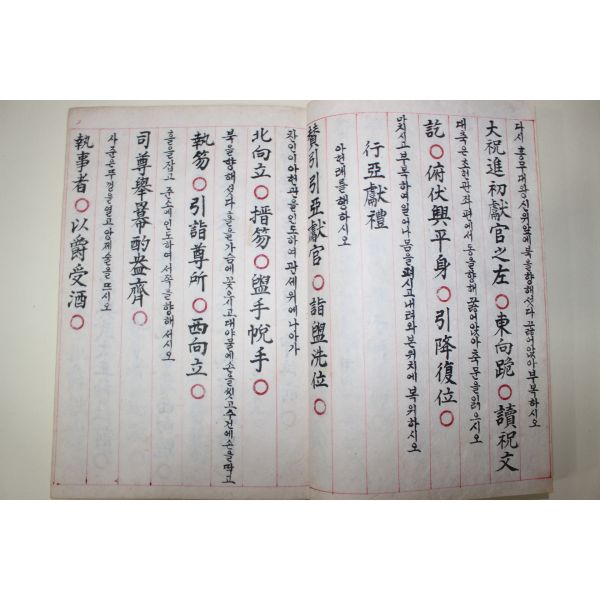 다시 흥무대왕신위앞에 북을향해섯다 꿇어앉아부복하시오
大祝進初獻官之左○東向跪○讀祝文
대축은초헌관좌편에서 동을향해 꿇어앉아 축문을읽으시오
訖○俯伏興平身○引降復位○
마치시고부복하여일어나몸을펴시고내려와본위치에 복위하시오
行亞獻禮
아헌례를행하시오
賛引引亞獻官○詣盥洗位○
찬인이아헌관을인도하여 관세위에나아가
北向立○搢笏○盥手帨手○
북을향해섯다홀을가슴에꽂으시고대야물에손을씻고수건에손을딱고
執笏○引詣尊所○西向立○
홀을잡고 준소에인도하여서쪽을향해서시오
司尊擧冪酌盎齊○
사준은뚜껑을열고앙제술을뜨시오
執事者○以爵受酒○